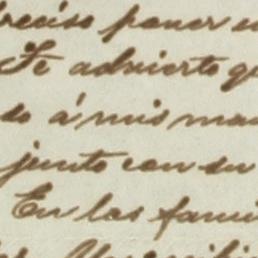 preciso poner
Te advierto q
do á mis ma
junto con su
En las fami